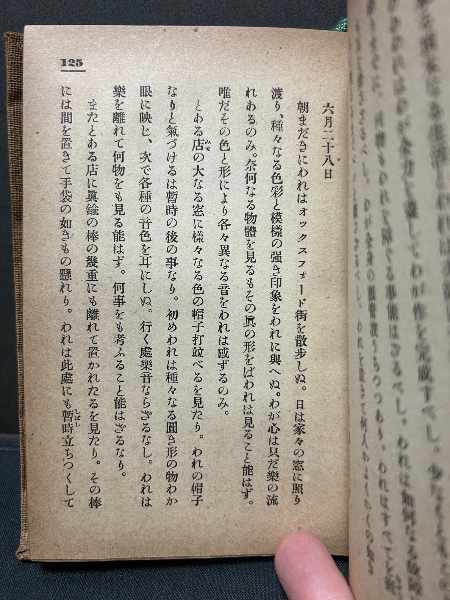 六月二十八日
朝まだきにわれはオックスフォード街を散歩しぬ。日は家々の窓に照り
渡り、種々なる色彩と模樣の强き印象をわれに與へぬ。わが心は只だ樂の流
れあるのみ。奈何なる物體を見るもその眞の形をばわれは見ること能はず。
唯だその色と形により各々異なる音をわれは感ずるのみ。
とある店の大なる窓に樣々なる色の帽子打竝べるを見たり。われの帽子
なりと氣づけるは暫時の後の事なり。初めわれは種々なる圓き形の物わか
眼に映じ、次で各種の音色を耳にしぬ。行く處樂音ならざるなし。われは
樂を離れて何物をも見る能はず。何事をも考ふること能はざるなり。
またとある店に眞鍮の棒の幾重にも離れて置かれたるを見たり。その棒
には間を置きて手袋の如きもの懸れり。われは此處にも暫時立ちつくして
125